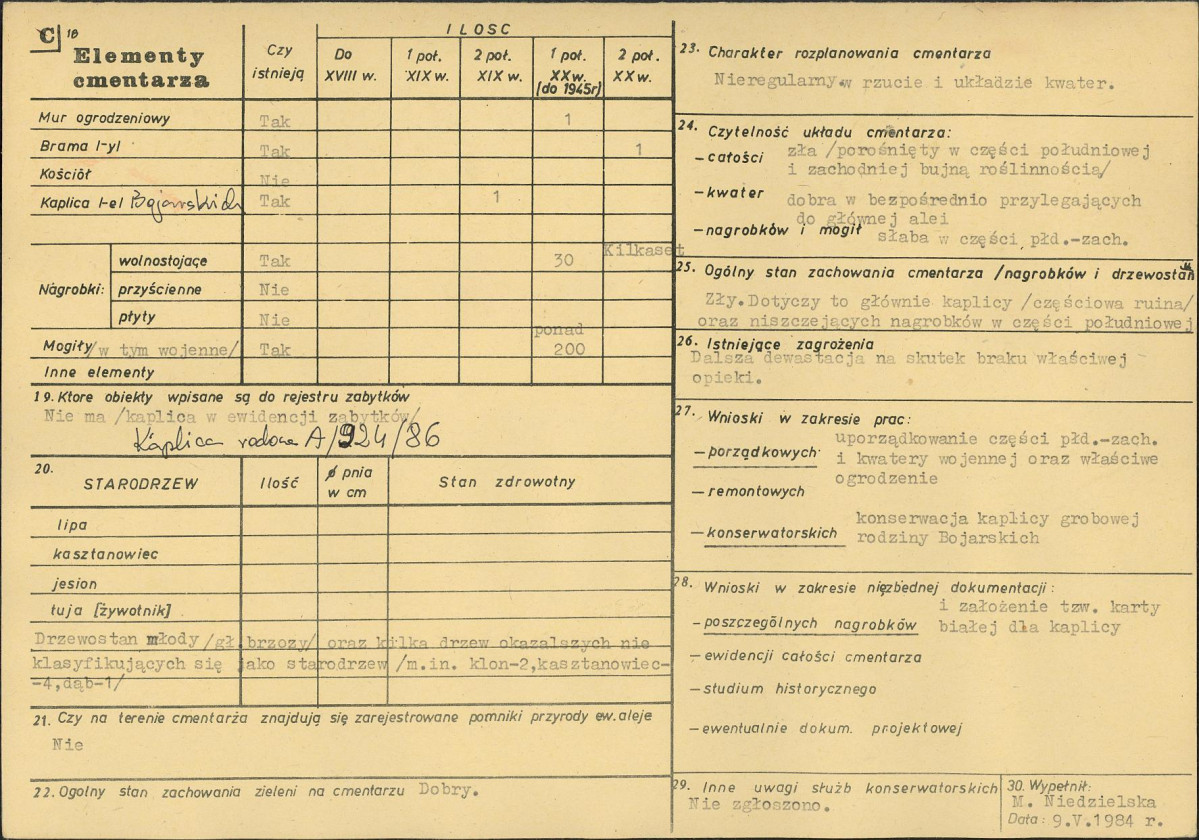 C 18
Elementy
cmentarza
Czy
istnieją
ILOSC
Do
XVIII w.
1 poł.
XIX w.
2 poł.
XIX w.
1 poł.
XX w.
(do 1945r)
2 poł.
XX w.
Mur ogrodzeniowy Tak 1
Brama /-y/ Tak 1
Kościół Nie
Kaplica /-e/ Bojarskich Tak 1
Nagrobki:
wolnostojące Tak 30 Kilkaset
przyścienne Nie
płyty Nie
Mogiły /w tym wojenne/ Tak ponad
200
Inne elementy
19. Ktore obiekty wpisane są do rejestru zabytków
Nie ma /kaplica w ewidencji zabytków/
Kaplica rodowa A/924/86
20.
STARODRZEW Ilość ø pnia
w cm Stan zdrowotny
lipa
kasztanowiec
jesion
tuja [żywotnik]
Drzewostan młody /gł.brzozy/ oraz kilka drzew okazalszych nie
klasyfikujących się jako starodrzew /m.in. klon-2,kasztanowiec-
-4,dąb-1/
21. Czy na terenie cmentarża znajdują się zarejestrowane pomniki przyrody ew. aleje
Nie
22. Ogolny stan zachowania zieleni na cmentarzu Dobry.
23. Charakter rozplanowania cmentarza
Nieregularny w rzucie i układzie kwater.
24. Czytelność układu cmentarza:
– całości zła /porośnięty w części południowej
i zachodniej bujną roślinnością/
– kwater dobra w bezpośrednio przylegających
do głównej alei
– nagrobków i mogił słaba w części płd.-zach.
25. Ogólny stan zachowania cmentarza /nagrobków i drzewostanu
Zły. Dotyczy to głównie kaplicy /częściowa ruina/
oraz niszczejących nagrobków w części południowej
26. Istniejące zagrożenia
Dalsza dewastacja na skutek braku właściwej
opieki.
27. Wnioski w zakresie prac:
– porządkowych uporządkowanie części płd.-zach.
i kwatery wojennej oraz właściwe
ogrodzenie
– remontowych
– konserwatorskich konserwacja kaplicy grobowej
rodziny Bojarskich
28. Wnioski w zakresie niezbędnej dokumentacji:
– poszczególnych nagrobków i założenie tzw. karty
białej dla kaplicy
– ewidencji całości cmentarza
– studium historycznego
– ewentualnie dokum. projektowej
29. Inne uwagi służb konserwatorskich
Nie zgłoszono.
30. Wypełnił:
M. Niedzielska
Data: 9.V.1984 r.